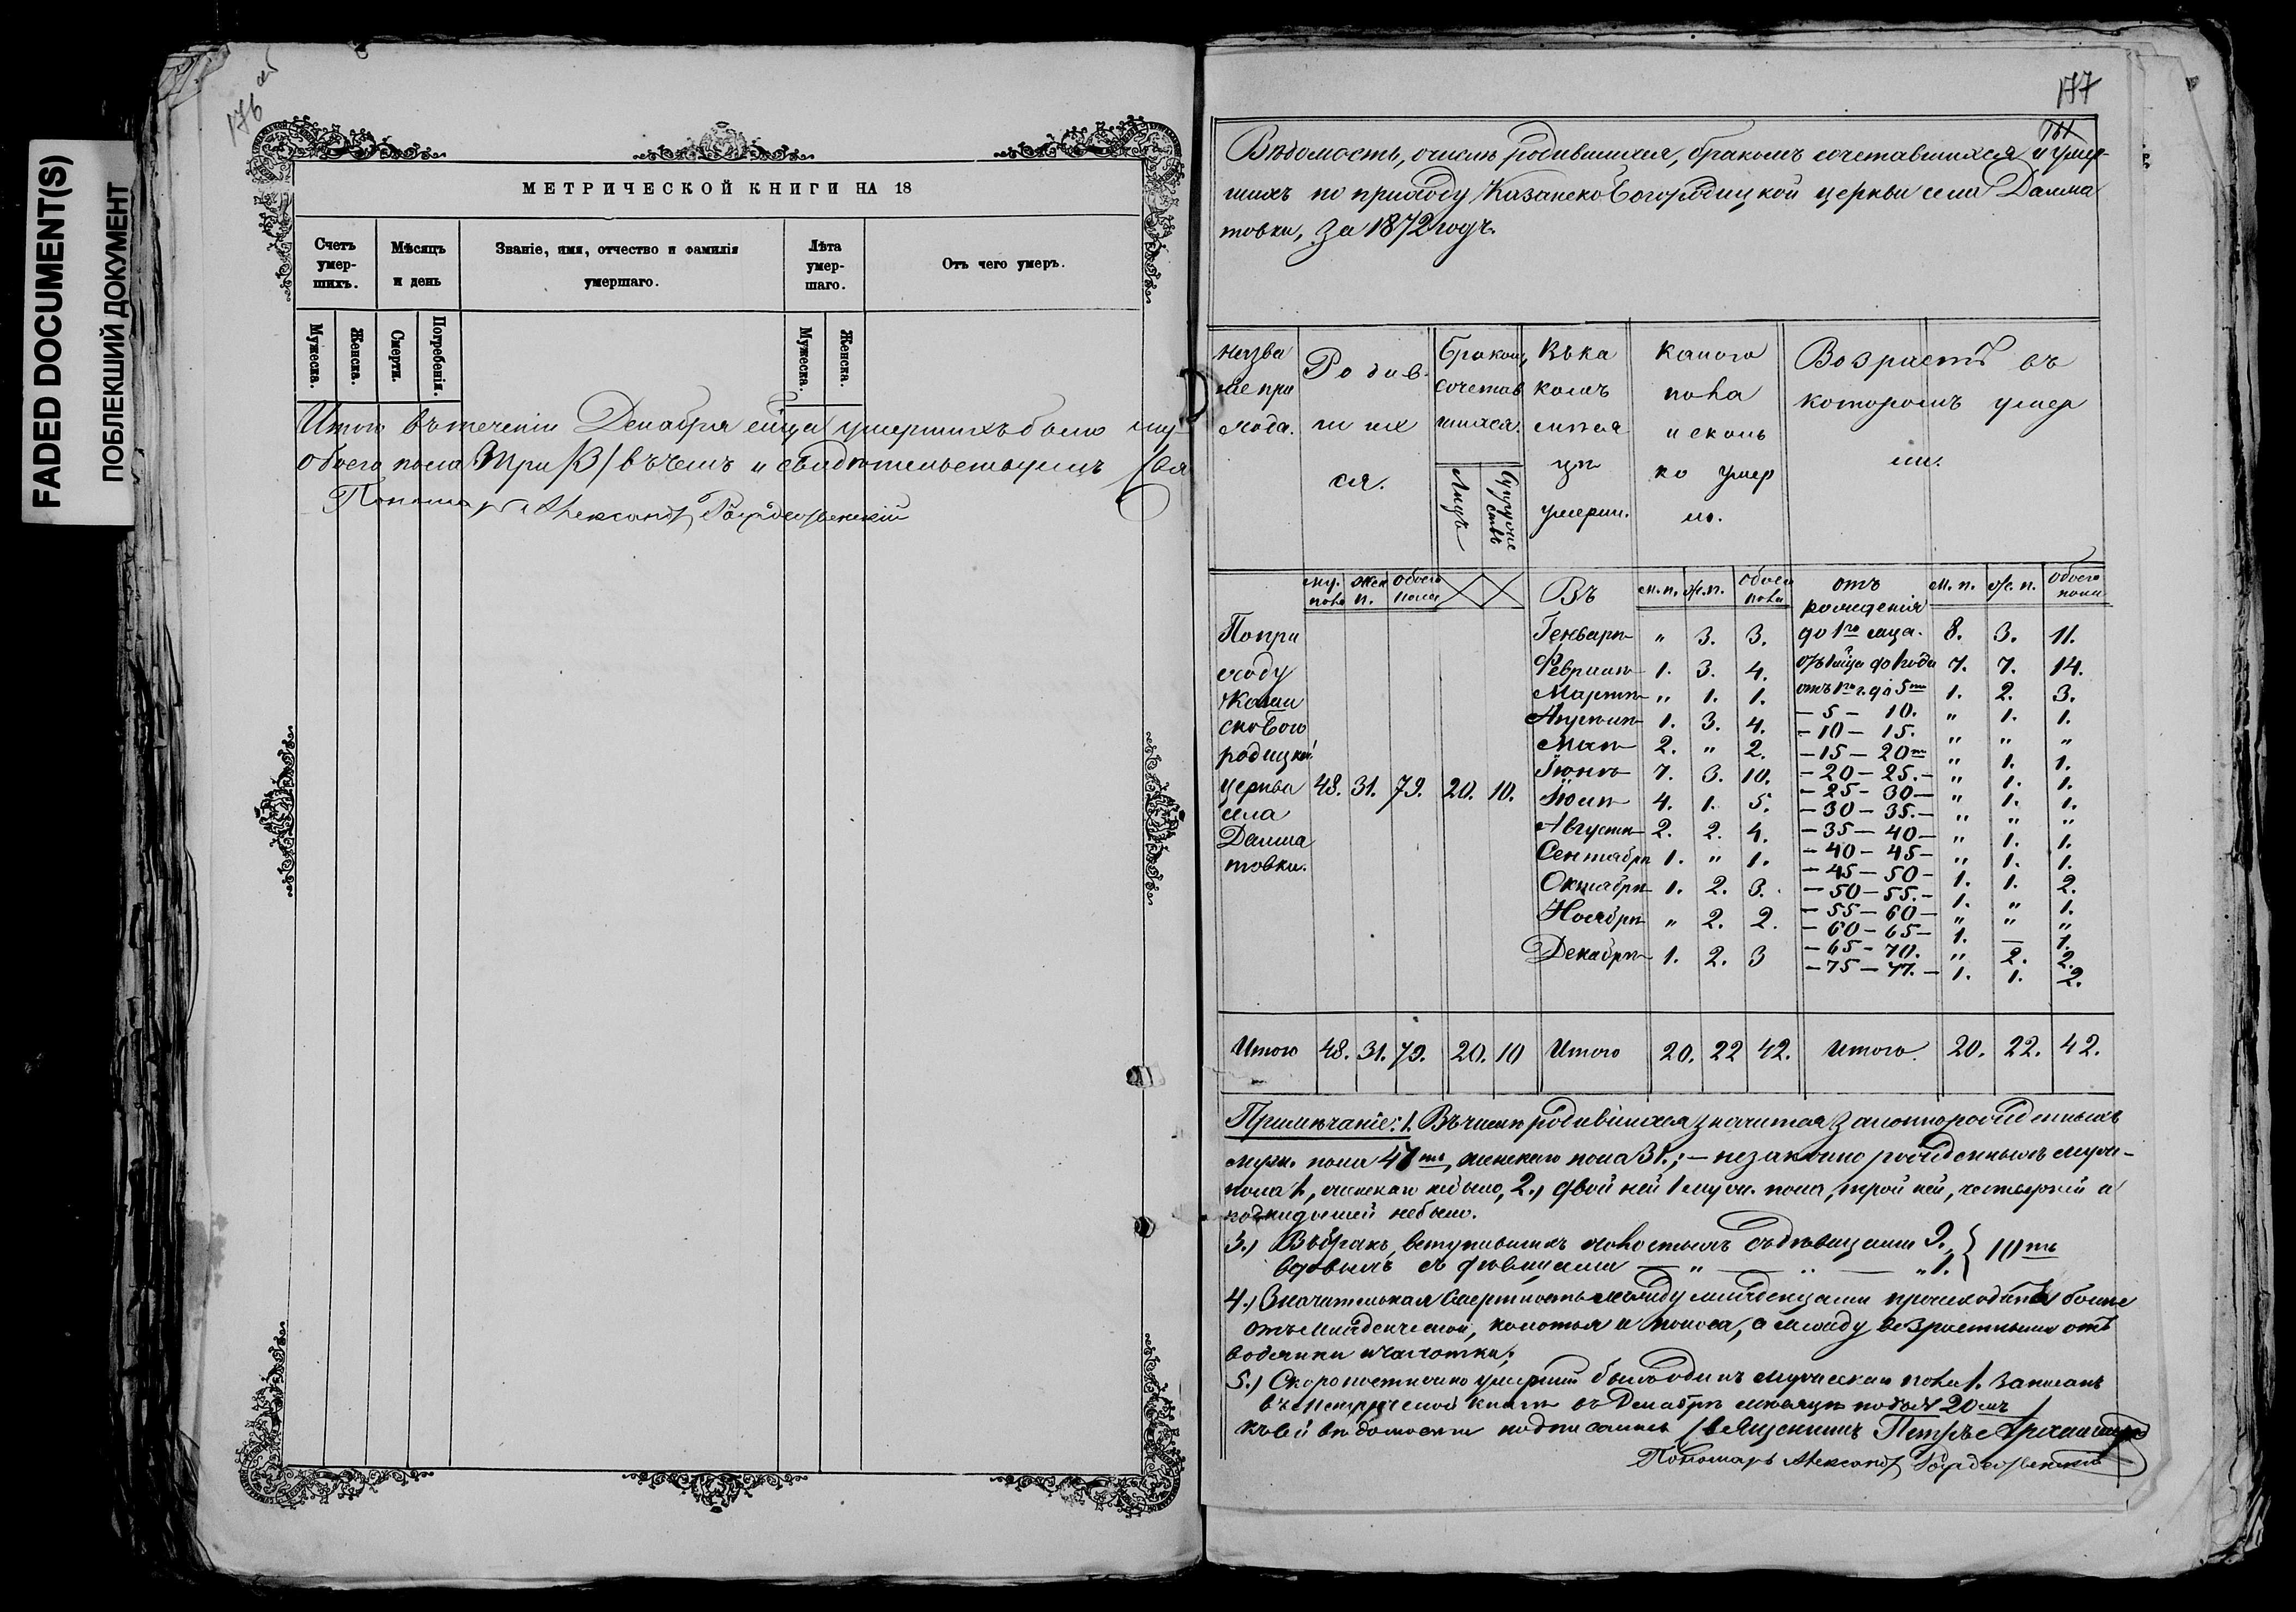 FADED DOCUMENT(S)
ПОБЛЕКШИЙ ДОКУМЕНТ
176 об
МЕТРИЧЕСКОЙ КНИГИ НА 18
Счетъ умер-шихъ.
Мѣсяцъ и день
Званіе, имя, отчество и фамилія умершаго.
Лѣта умер-шаго.
Отъ чего умеръ.
Мужеска. Женска. Смерти. Погребенія. Мужеска. Женска.
Итого въ теченіи Декабря мѣсяца умершихъ было му-
обоего пола три /3/ въ чемъ и свидѣтельствуемъ
Пономарь Александръ Рождественскій
177
Вѣдомость, о числѣ родившихся, бракомъ сочетавшихся и умер-
шихъ по приходу Казанско Богородицкой церкви села Далма
товки, за 1872 годъ.
Назва ніе при хода.
Родив ших ся.
Бракомъ сочетав шихся.
Лицъ Супруже ствъ
Въ ка комъ мѣся цѣ умерш.
Какого пола и сколь ко умер ло.
Возрастъ въ которомъ умер ли.
му. пола жен п. обоего пола
Въ м.п. ж.п. обоего пола
отъ рожденія м.п. ж.п. обоего пола
По при ходу Казан ско Бого родицкой церкви села Далма товки.
48. 31. 79. 20. 10.
Генварѣ " 3. 3. до 1го мца. 8. 3. 11.
Февралѣ 1. 3. 4. отъ 1 мца до 1 года 7. 7. 14.
Мартѣ " 1. 1. отъ 1го г. до 5ти 1. 2. 3.
Апрѣлѣ 1. 3. 4. – 5 – 10. " 1. 1.
– 10 – 15. " " "
Маѣ 2. " 2. – 15 – 20ти " 1. 1.
Іюнѣ 7. 3. 10. – 20 – 25. – " 1. 1.
– 25 – 30 – " 1. 1.
Іюлѣ 4. 1. 5. – 30 – 35. – " " "
Августѣ 2. 2. 4. – 35 – 40 – " 1. 1.
Сентябрѣ 1. " 1. – 40 – 45 – " 1. 1.
– 45 – 50 – 1. 1. 2.
Октябрѣ 1. 2. 3. – 50 – 55. – 1. " 1.
Ноябрѣ " 2. 2. – 55 – 60 – " " "
– 60 – 65 – 1. — 1.
Декабрѣ 1. 2. 3 – 65 – 70. " 2. 2.
– 75 – 77. – 1. 1. 2.
Итого 48. 31. 79. 20. 10 Итого 20. 22 42. Итого. 20. 22. 42.
Примѣчаніе: 1. Въ числѣ родившихся значится законнорожденныхъ
муж. пола 47мь, женскаго пола 31.; – незаконно рожденныхъ муж-
пола 1, женскаго небыло, 2.) двойней 1 муж. пола, тройней, четверней и
подкидышей небыло.
3.) Въ бракъ вступившихъ холостыхъ съ дѣвицами 9. } 10ть
вдовыхъ съ дѣвицами — " — " — " 1.
4.) Значительная смертность между младенцами происходитъ болѣе
отъ младенческой, колотья и поноса, а между возрастными отъ
водянки и чахотки;
5.) Скоропостижно умершій былъ одинъ мужескаго пола 1. записанъ
въ метрической книгѣ въ Декабрѣ мѣсяцѣ подъ № 20мъ
къ сей вѣдомости подписались Священникъ Петръ
Пономарь Александръ Рождественскій